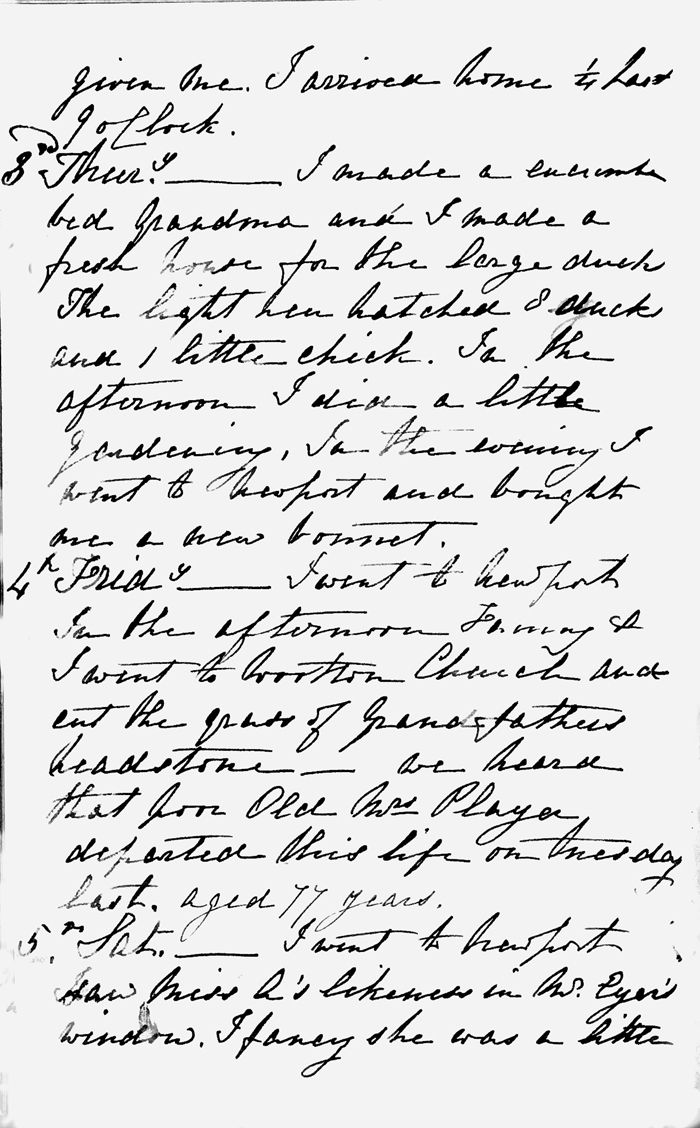 given me. I arrived home ¼ past
9 o Clock.
3rd Thur.y —— I made a cucumbe
bed Grandma and I made a
fresh house for the large duck
The light hen hatched 8 ducks
and 1 little chick. In the
afternoon I did a little
gardening, In the evening I
went to Newport and bought
me a new bonnet.
4th Fridy —— I went to Newport
In the afternoon Fanny &
I went to Wootton Church and
cut the grass of Grandfathers
headstone — we heard
that poor Old Mrs Player
departed this life on Tuesday
last. aged 77 years.
5.th Sat. —— I went to Newport
Saw Miss A's likeness in Mr. Eyer's
window. I fancy she was a little